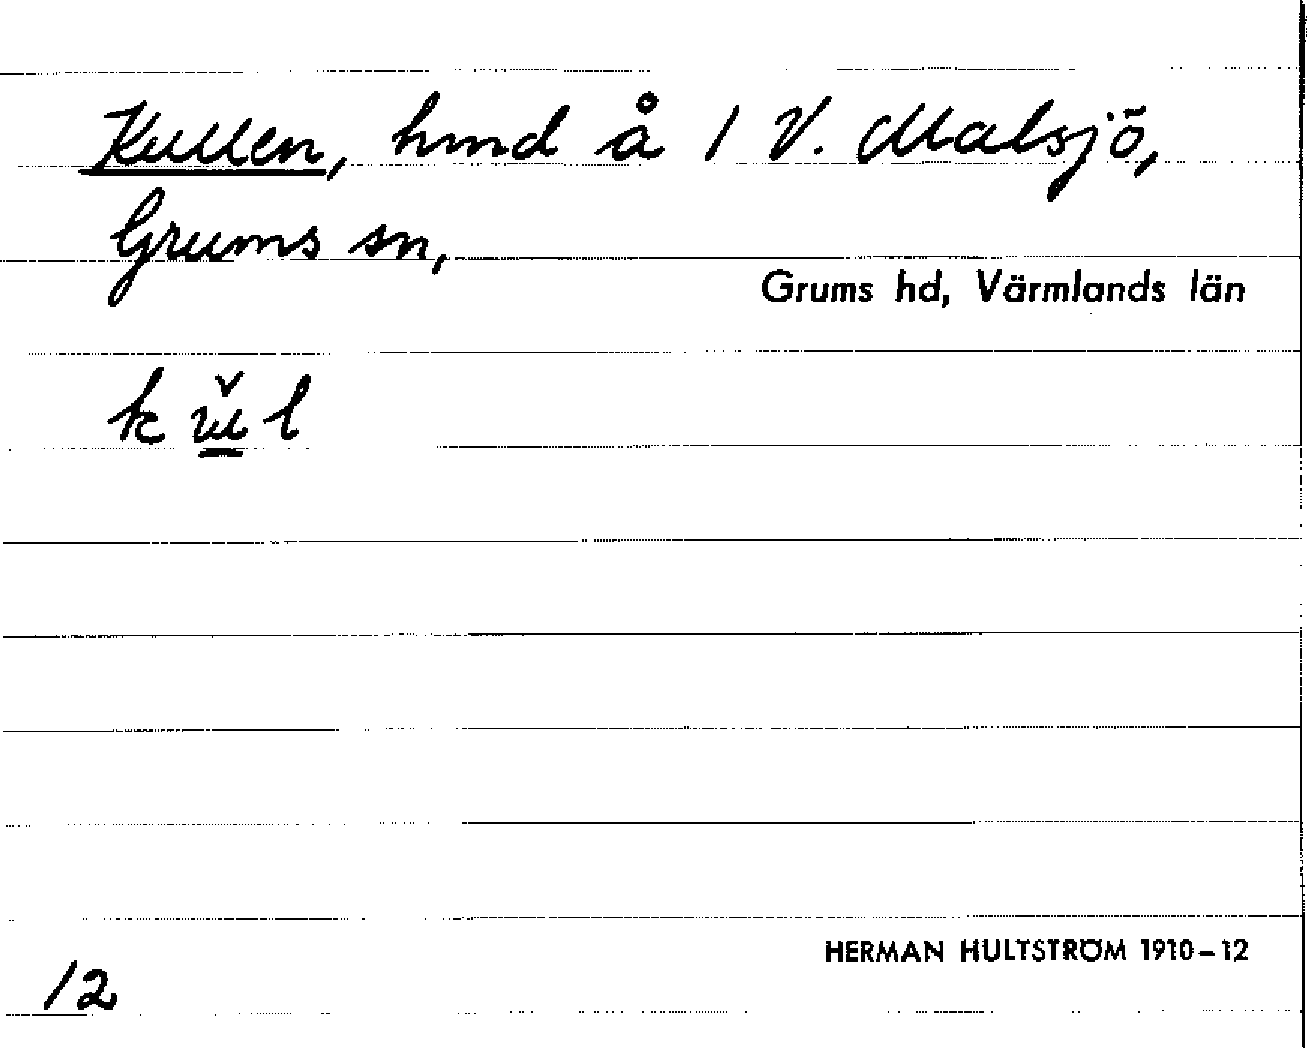 Kullen, hmd å 1 V. Malsjö,
Grums sn,
Grums hd, Värmlands län
k ŭ l
12
HERMAN HULTSTRÖM 1910–12